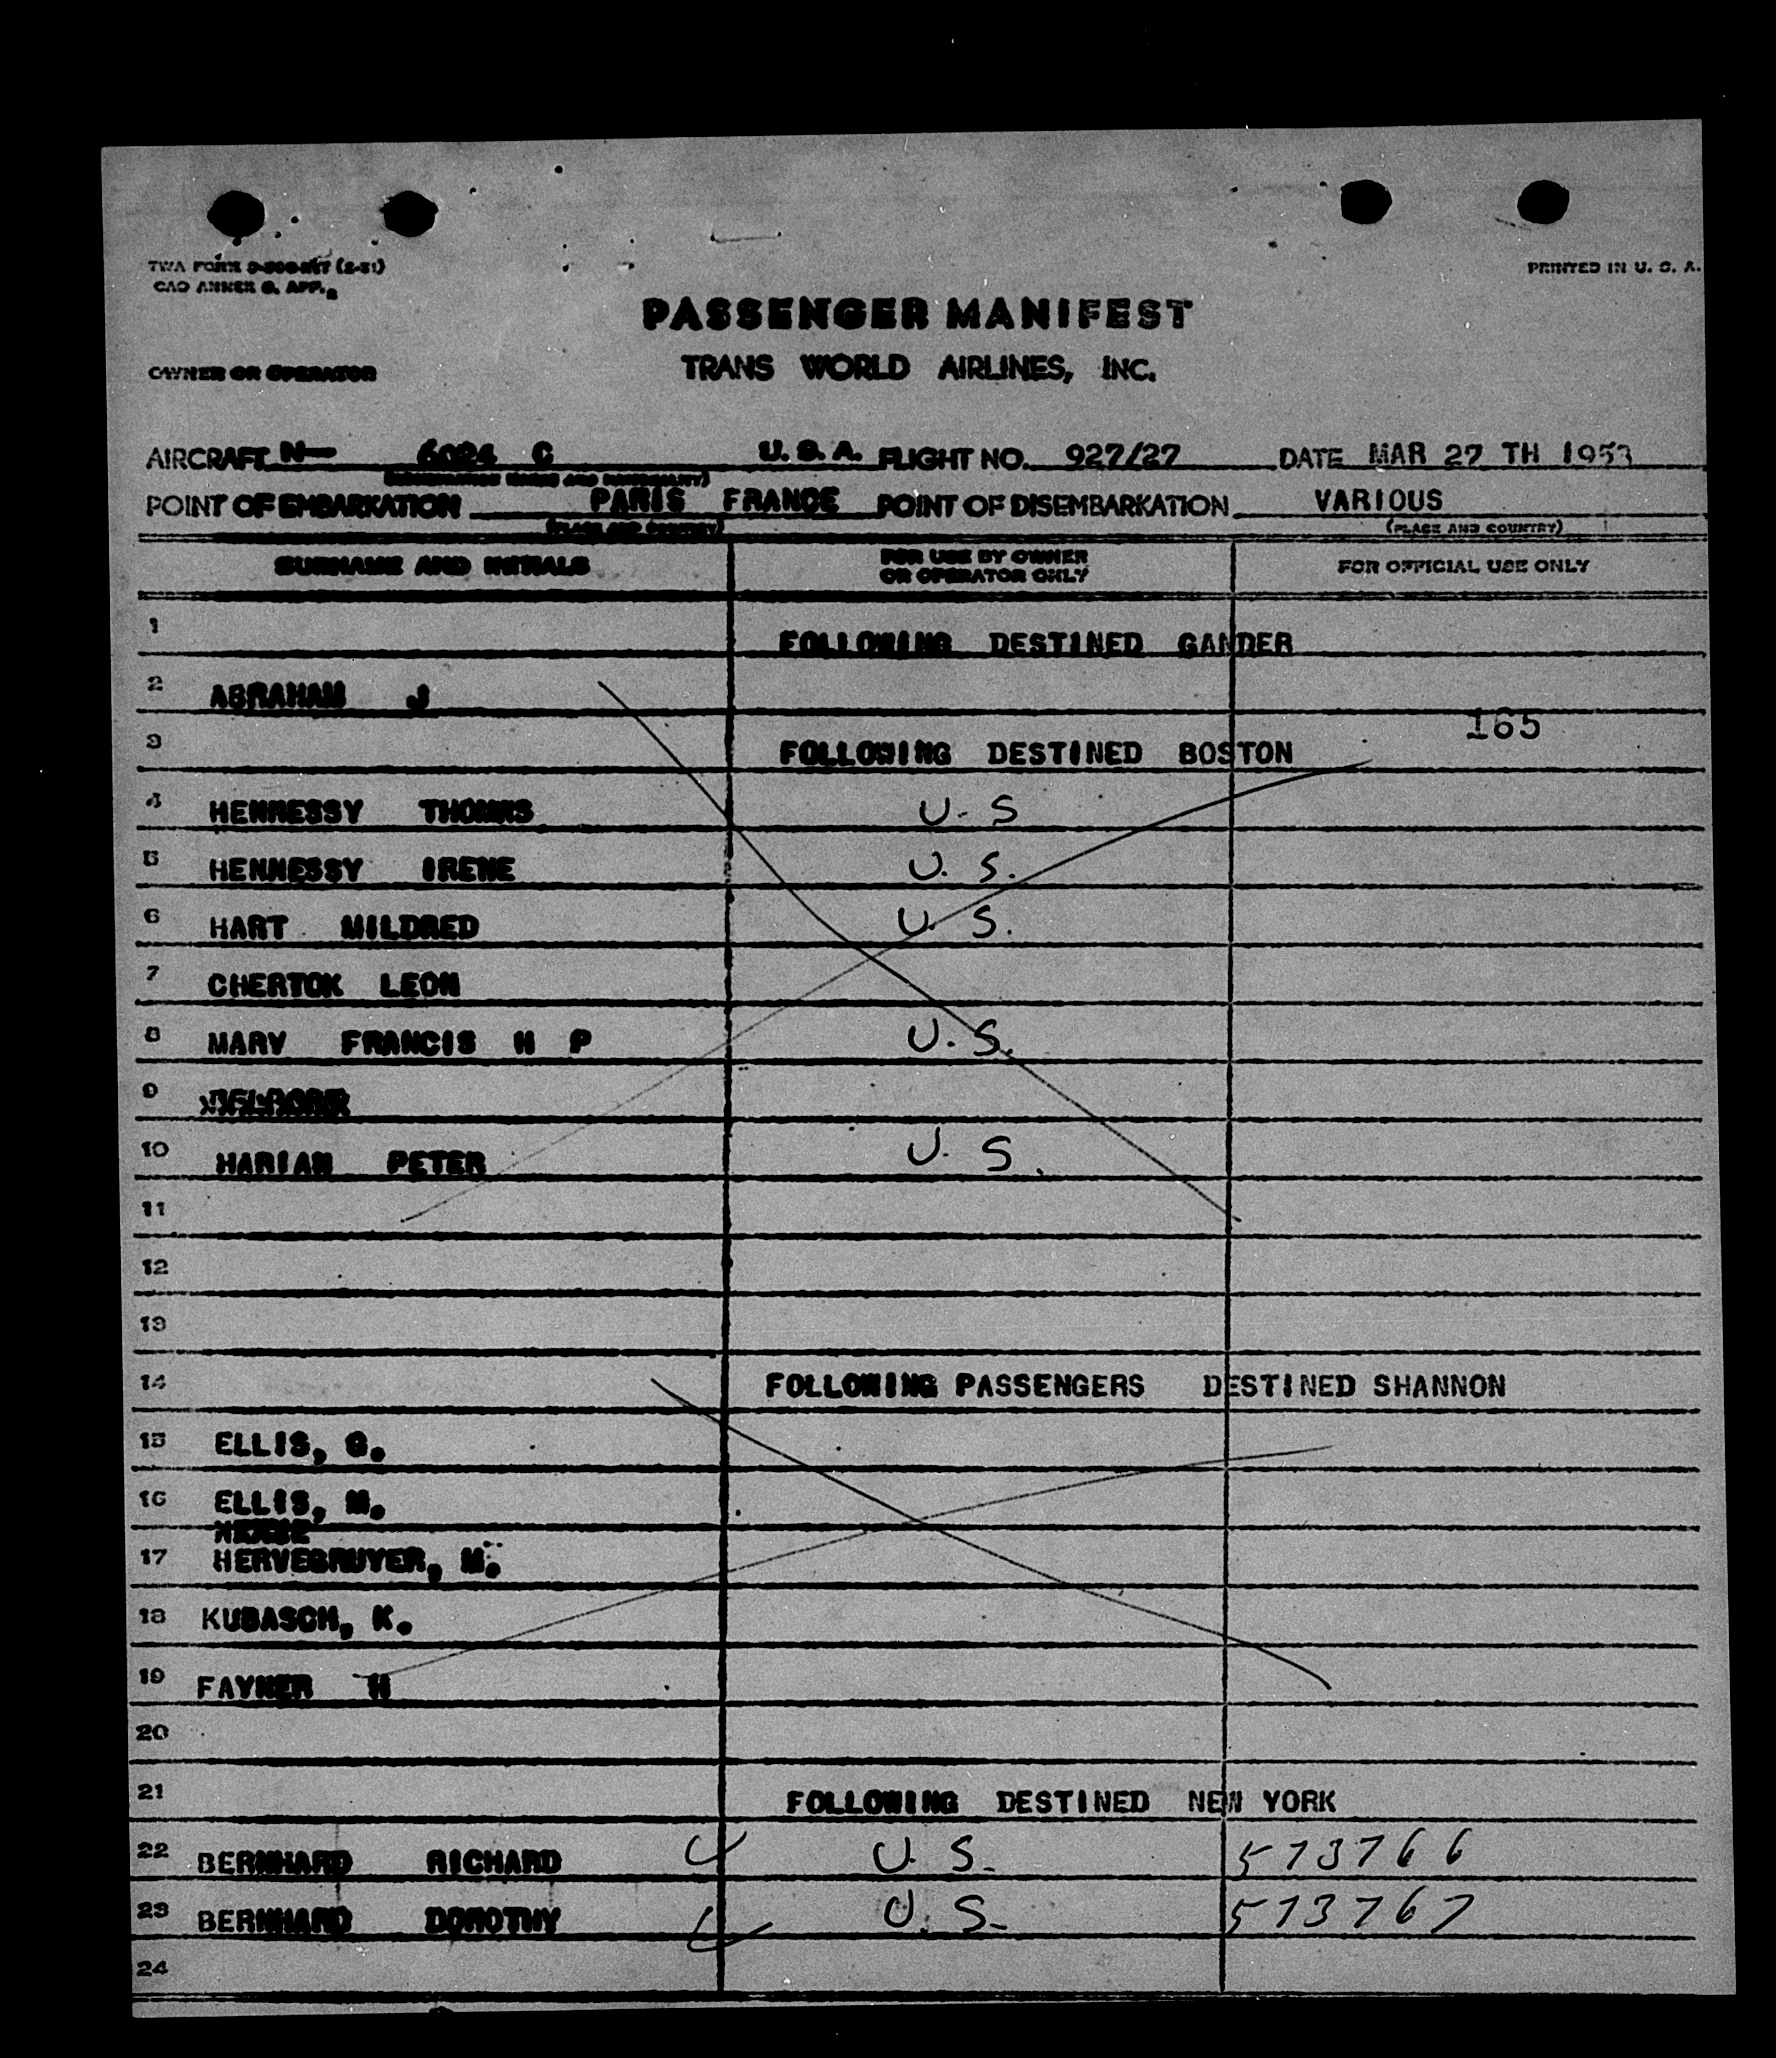 TWA FORM
PRINTED IN U. S. A.
CAO ANNEX 9. APP.
PASSENGER MANIFEST
OWNER OR OPERATOR TRANS WORLD AIRLINES, INC.
AIRCRAFT N— 6024 C U. S. A. FLIGHT NO. 927/27 DATE MAR 27 TH 1953
POINT OF EMBARKATION PARIS FRANCE POINT OF DISEMBARKATION VARIOUS
(PLACE AND COUNTRY) (PLACE AND COUNTRY)
SURNAME AND INITIALS FOR USE BY OWNER OR OPERATOR ONLY FOR OFFICIAL USE ONLY
1 FOLLOWING DESTINED GANDER
2 ABRAHAM J
165
3 FOLLOWING DESTINED BOSTON
4 HENNESSY THOMAS U-S
5 HENNESSY IRENE U. S.
6 HART MILDRED U. S.
7 CHERTOK LEON
8 MARY FRANCIS H P U. S.
9
10 HARIAN PETER U. S.
11
12
13
14 FOLLOWING PASSENGERS DESTINED SHANNON
15 ELLIS, G.
16 ELLIS, M.
17 HERVEGRUYER, M.
18 KUBASCH, K.
19 FAYNER H
20
21 FOLLOWING DESTINED NEW YORK
22 BERNHARD RICHARD U. S. 573766
23 BERNHARD DOROTHY U. S. 573767
24